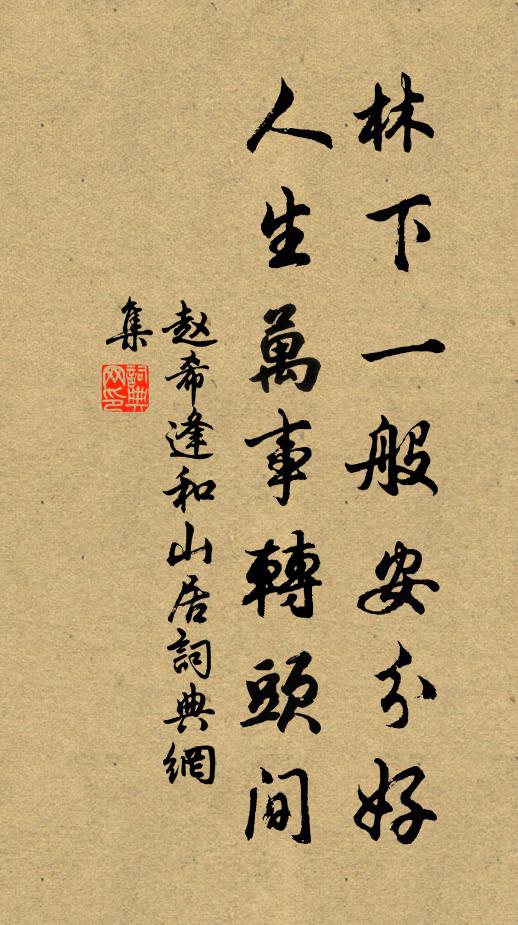 林下一般安分好
人生萬事轉頭间
赵希逢和山居詞典網
集
詞典
网印